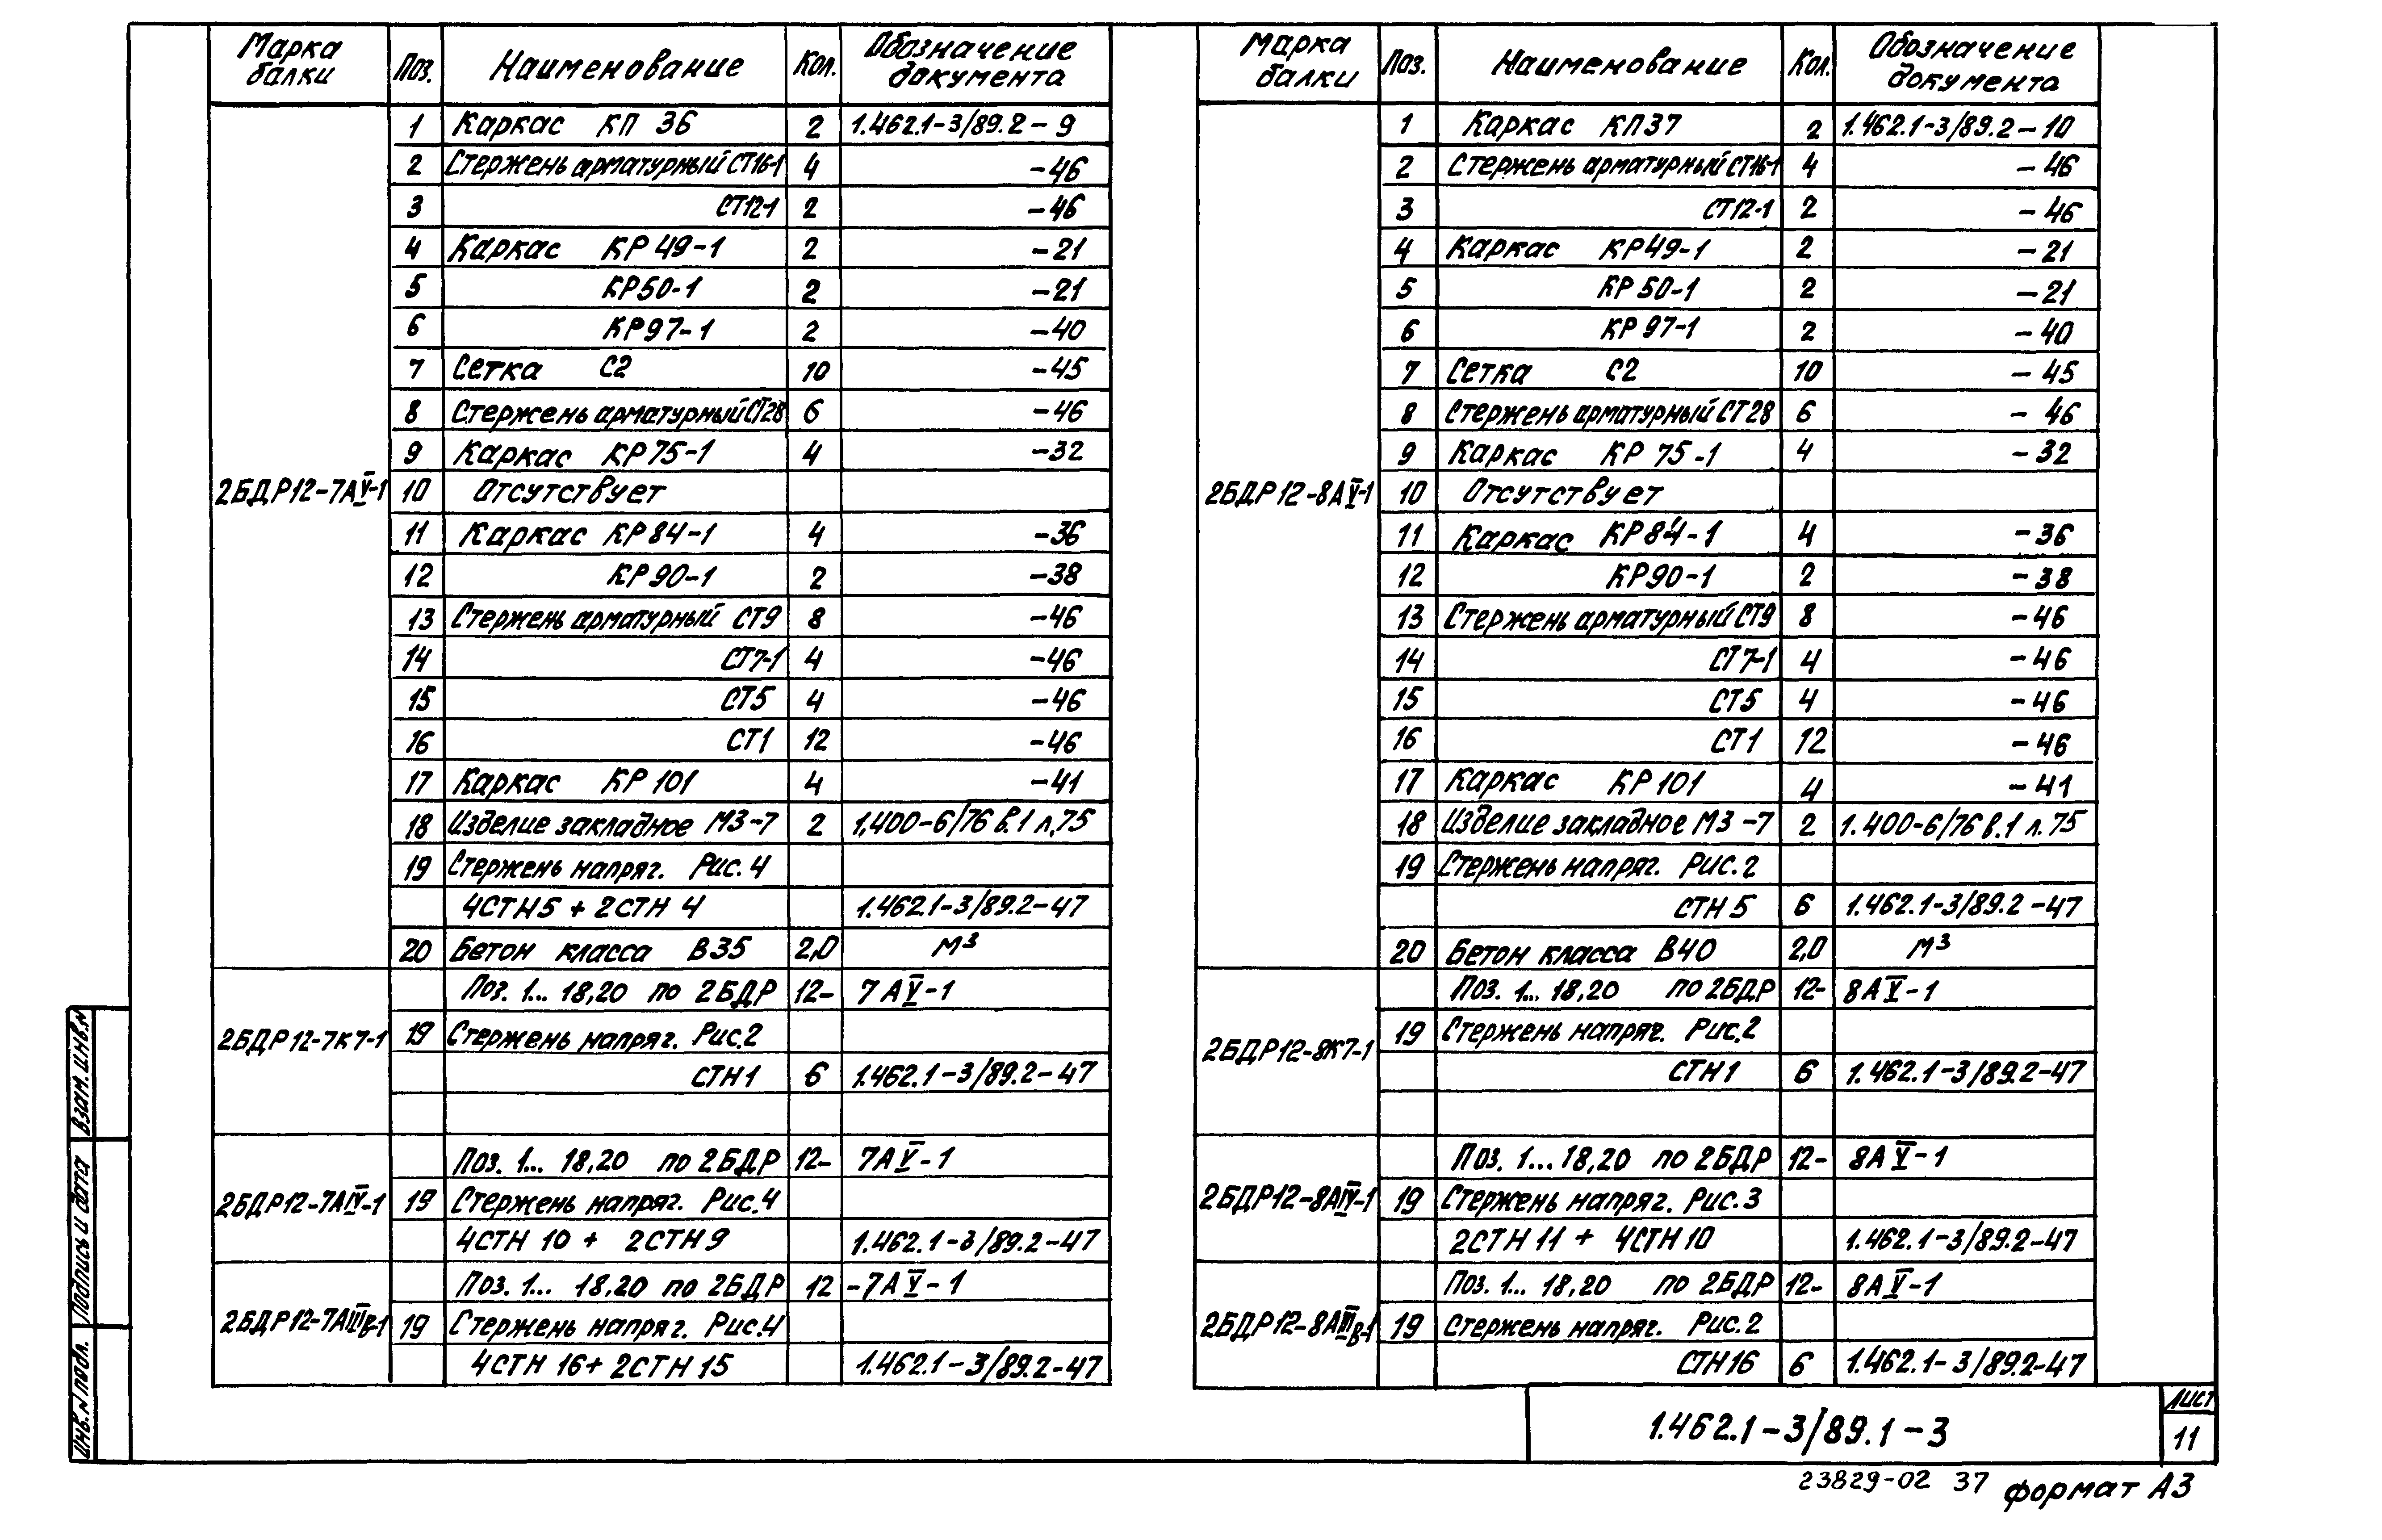 Марка балки Поз. Наименование Кол. Обозначение документа
2БДР12-7АV-1
1 Каркас КП 36 2 1.462.1-3/89.2-9
2 Стержень арматурный СТ16-1 4 -46
3 СТ12-1 2 -46
4 Каркас КР 49-1 2 -21
5 КР50-1 2 -21
6 КР97-1 2 -40
7 Сетка С2 10 -45
8 Стержень арматурный СТ28 6 -46
9 Каркас КР75-1 4 -32
10 Отсутствует
11 Каркас КР84-1 4 -36
12 КР90-1 2 -38
13 Стержень арматурный СТ9 8 -46
14 СТ7-1 4 -46
15 СТ5 4 -46
16 СТ1 12 -46
17 Каркас КР 101 4 -41
18 Изделие закладное МЗ-7 2 1.400-6/76 в.1 л.75
19 Стержень напряг. Рис. 4
4СТН5 + 2СТН 4 1.462.1-3/89.2-47
20 Бетон класса В35 2,0 м³
2БДР12-7К7-1
Поз. 1... 18,20 по 2БДР 12- 7АV-1
19 Стержень напряг. Рис.2
СТН1 6 1.462.1-3/89.2-47
2БДР12-7АIV-1
Поз. 1... 18,20 по 2БДР 12- 7АV-1
19 Стержень напряг. Рис.4
4СТН 10 + 2СТН9 1.462.1-3/89.2-47
2БДР12-7АIIIв-1
Поз. 1... 18,20 по 2БДР 12 -7АV-1
19 Стержень напряг. Рис.4
4СТН 16+ 2СТН 15 1.462.1-3/89.2-47
Марка балки Поз. Наименование Кол. Обозначение документа
2БДР12-8АV-1
1 Каркас КП37 2 1.462.1-3/89.2-10
2 Стержень арматурный СТ16-1 4 -46
3 СТ12-1 2 -46
4 Каркас КР49-1 2 -21
5 КР50-1 2 -21
6 КР 97-1 2 -40
7 Сетка С2 10 -45
8 Стержень арматурный СТ28 6 -46
9 Каркас КР 75-1 4 -32
10 Отсутствует
11 Каркас КР84-1 4 -36
12 КР90-1 2 -38
13 Стержень арматурный СТ9 8 -46
14 СТ7-1 4 -46
15 СТ5 4 -46
16 СТ1 12 -46
17 Каркас КР101 4 -41
18 Изделие закладное МЗ-7 2 1.400-6/76 в.1 л.75
19 Стержень напряг. Рис.2
СТН5 6 1.462.1-3/89.2-47
20 Бетон класса В40 2,0 м³
2БДР12-8К7-1
Поз. 1... 18,20 по 2БДР 12- 8АV-1
19 Стержень напряг. Рис.2
СТН1 6 1.462.1-3/89.2-47
2БДР12-8АIV-1
Поз. 1...18,20 по 2БДР 12- 8АV-1
19 Стержень напряг. Рис.3
2СТН 11 + 4СТН10 1.462.1-3/89.2-47
2БДР12-8АIIIв-1
Поз. 1... 18,20 по 2БДР 12- 8АV-1
19 Стержень напряг. Рис.2
СТН16 6 1.462.1-3/89.2-47
Взам. инв.N
Подпись и дата
Инв.N подл.
1.462.1-3/89.1-3
Лист
11
23829-02 37 формат А3